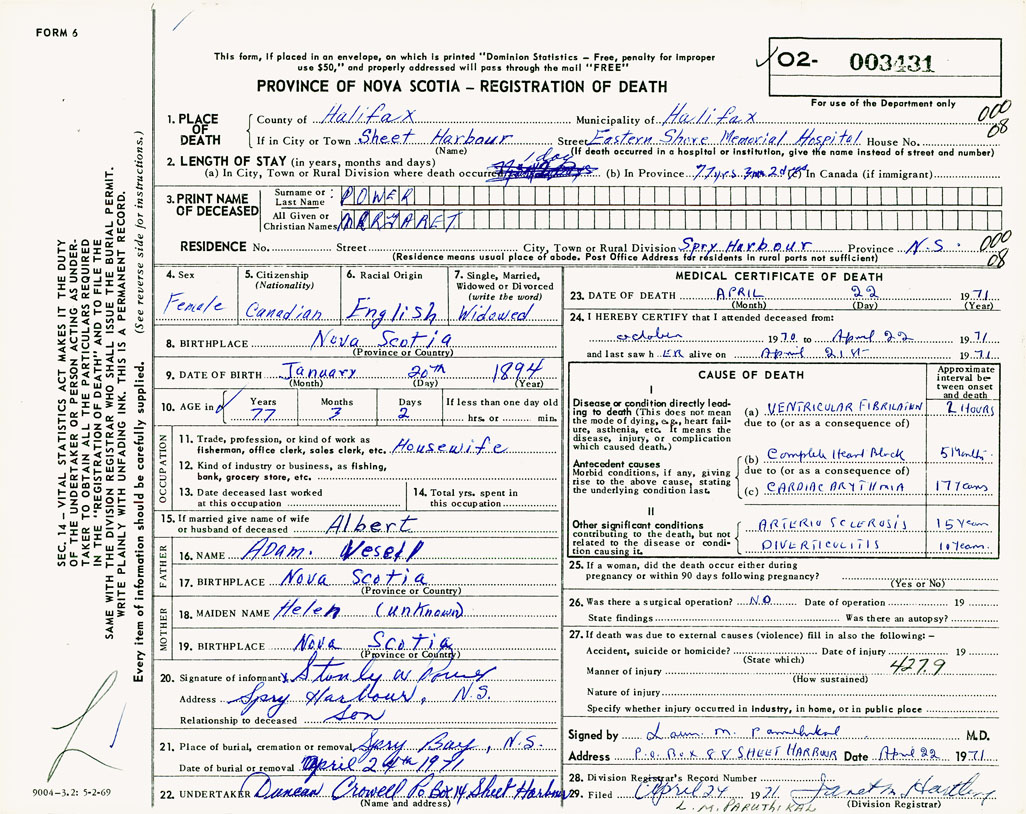 FORM 6
This form, if placed in an envelope, on which is printed "Dominion Statistics – Free, penalty for improper
use $50," and properly addressed will pass through the mail "FREE"
PROVINCE OF NOVA SCOTIA – REGISTRATION OF DEATH
02- 003431
For use of the Department only
1. PLACE OF DEATH
County of Halifax Municipality of Halifax 000
If in City or Town Sheet Harbour Street Eastern Shore Memorial Hospital House No. 08
(Name) (If death occurred in a hospital or institution, give the name instead of street and number)
2. LENGTH OF STAY (in years, months and days) 1 day
(a) In City, Town or Rural Division where death occurred (b) In Province 77 yrs 3 m 2 dys In Canada (if immigrant)
3. PRINT NAME OF DECEASED
Surname or Last Name: POWER
All Given or Christian Names MARGARET
RESIDENCE No. Street City, Town or Rural Division Spry Harbour Province N.S. 000
(Residence means usual place of abode. Post Office Address for residents in rural parts not sufficient) 08
4. Sex Female
5. Citizenship (Nationality) Canadian
6. Racial Origin English
7. Single, Married, Widowed or Divorced (write the word) Widowed
8. BIRTHPLACE Nova Scotia
(Province or Country)
9. DATE OF BIRTH January 20th 1894
(Month) (Day) (Year)
10. AGE in Years Months Days If less than one day old
77 3 2 hrs. or min.
OCCUPATION
11. Trade, profession, or kind of work as
fisherman, office clerk, sales clerk, etc. Housewife
12. Kind of industry or business, as fishing,
bank, grocery store, etc.
13. Date deceased last worked
at this occupation
14. Total yrs. spent in
this occupation
15. If married give name of wife
or husband of deceased Albert
FATHER
16. NAME Adam.
17. BIRTHPLACE Nova Scotia
(Province or Country)
MOTHER
18. MAIDEN NAME Helen (unknown)
19. BIRTHPLACE Nova Scotia
(Province or Country)
20. Signature of informant Stanly W Power
Address Spry Harbour, N.S.
Relationship to deceased Son
21. Place of burial, cremation or removal Spry Bay, N.S.
Date of burial or removal April 24th 1971
22. UNDERTAKER Duncan Crowell Po Box 14 Sheet Harbour
(Name and address)
MEDICAL CERTIFICATE OF DEATH
23. DATE OF DEATH APRIL 22 1971
(Month) (Day) (Year)
24. I HEREBY CERTIFY that I attended deceased from:
october 1970 to April 22 1971
and last saw h ER alive on April 21st 1971
CAUSE OF DEATH
Approximate interval between onset and death
I
Disease or condition directly leading to death (This does not mean the mode of dying, e.g., heart failure, asthenia, etc. It means the disease, injury, or complication which caused death.)
(a) VENTRICULAR FIBRILATION 2 HOURS
due to (or as a consequence of)
Antecedent causes
Morbid conditions, if any, giving rise to the above cause, stating the underlying condition last.
(b) Complete Heart Block 5 Months
due to (or as a consequence of)
(c) CARDIAC ARYTHMIA
II
Other significant conditions
contributing to the death, but not related to the disease or condition causing it.
ARTERIO SCLEROSIS 15 Years
DIVERTICULITIS 10 Years
25. If a woman, did the death occur either during
pregnancy or within 90 days following pregnancy?
(Yes or No)
26. Was there a surgical operation? NO Date of operation 19
State findings Was there an autopsy?
27. If death was due to external causes (violence) fill in also the following: –
Accident, suicide or homicide? Date of injury 19
(State which)
Manner of injury 427.9
(How sustained)
Nature of injury
Specify whether injury occurred in industry, in home, or in public place
Signed by M.D.
Address P.O. Box 88 SHEET HARBOUR Date April 22 1971
28. Division Registrar's Record Number
29. Filed April 24 1971 Janet M Hartling
L. M. PARUTHIKAL (Division Registrar)
SEC. 14 – VITAL STATISTICS ACT MAKES IT THE DUTY
OF THE UNDERTAKER OR PERSON ACTING AS UNDERTAKER
TO OBTAIN ALL THE PARTICULARS REQUIRED
IN THE "REGISTRATION OF DEATH" AND TO FILE THE
SAME WITH THE DIVISION REGISTRAR WHO SHALL ISSUE THE BURIAL PERMIT.
WRITE PLAINLY WITH UNFADING INK. THIS IS A PERMANENT RECORD.
Every item of information should be carefully supplied. (See reverse side for instructions.)
9004-3.2: 5-2-69